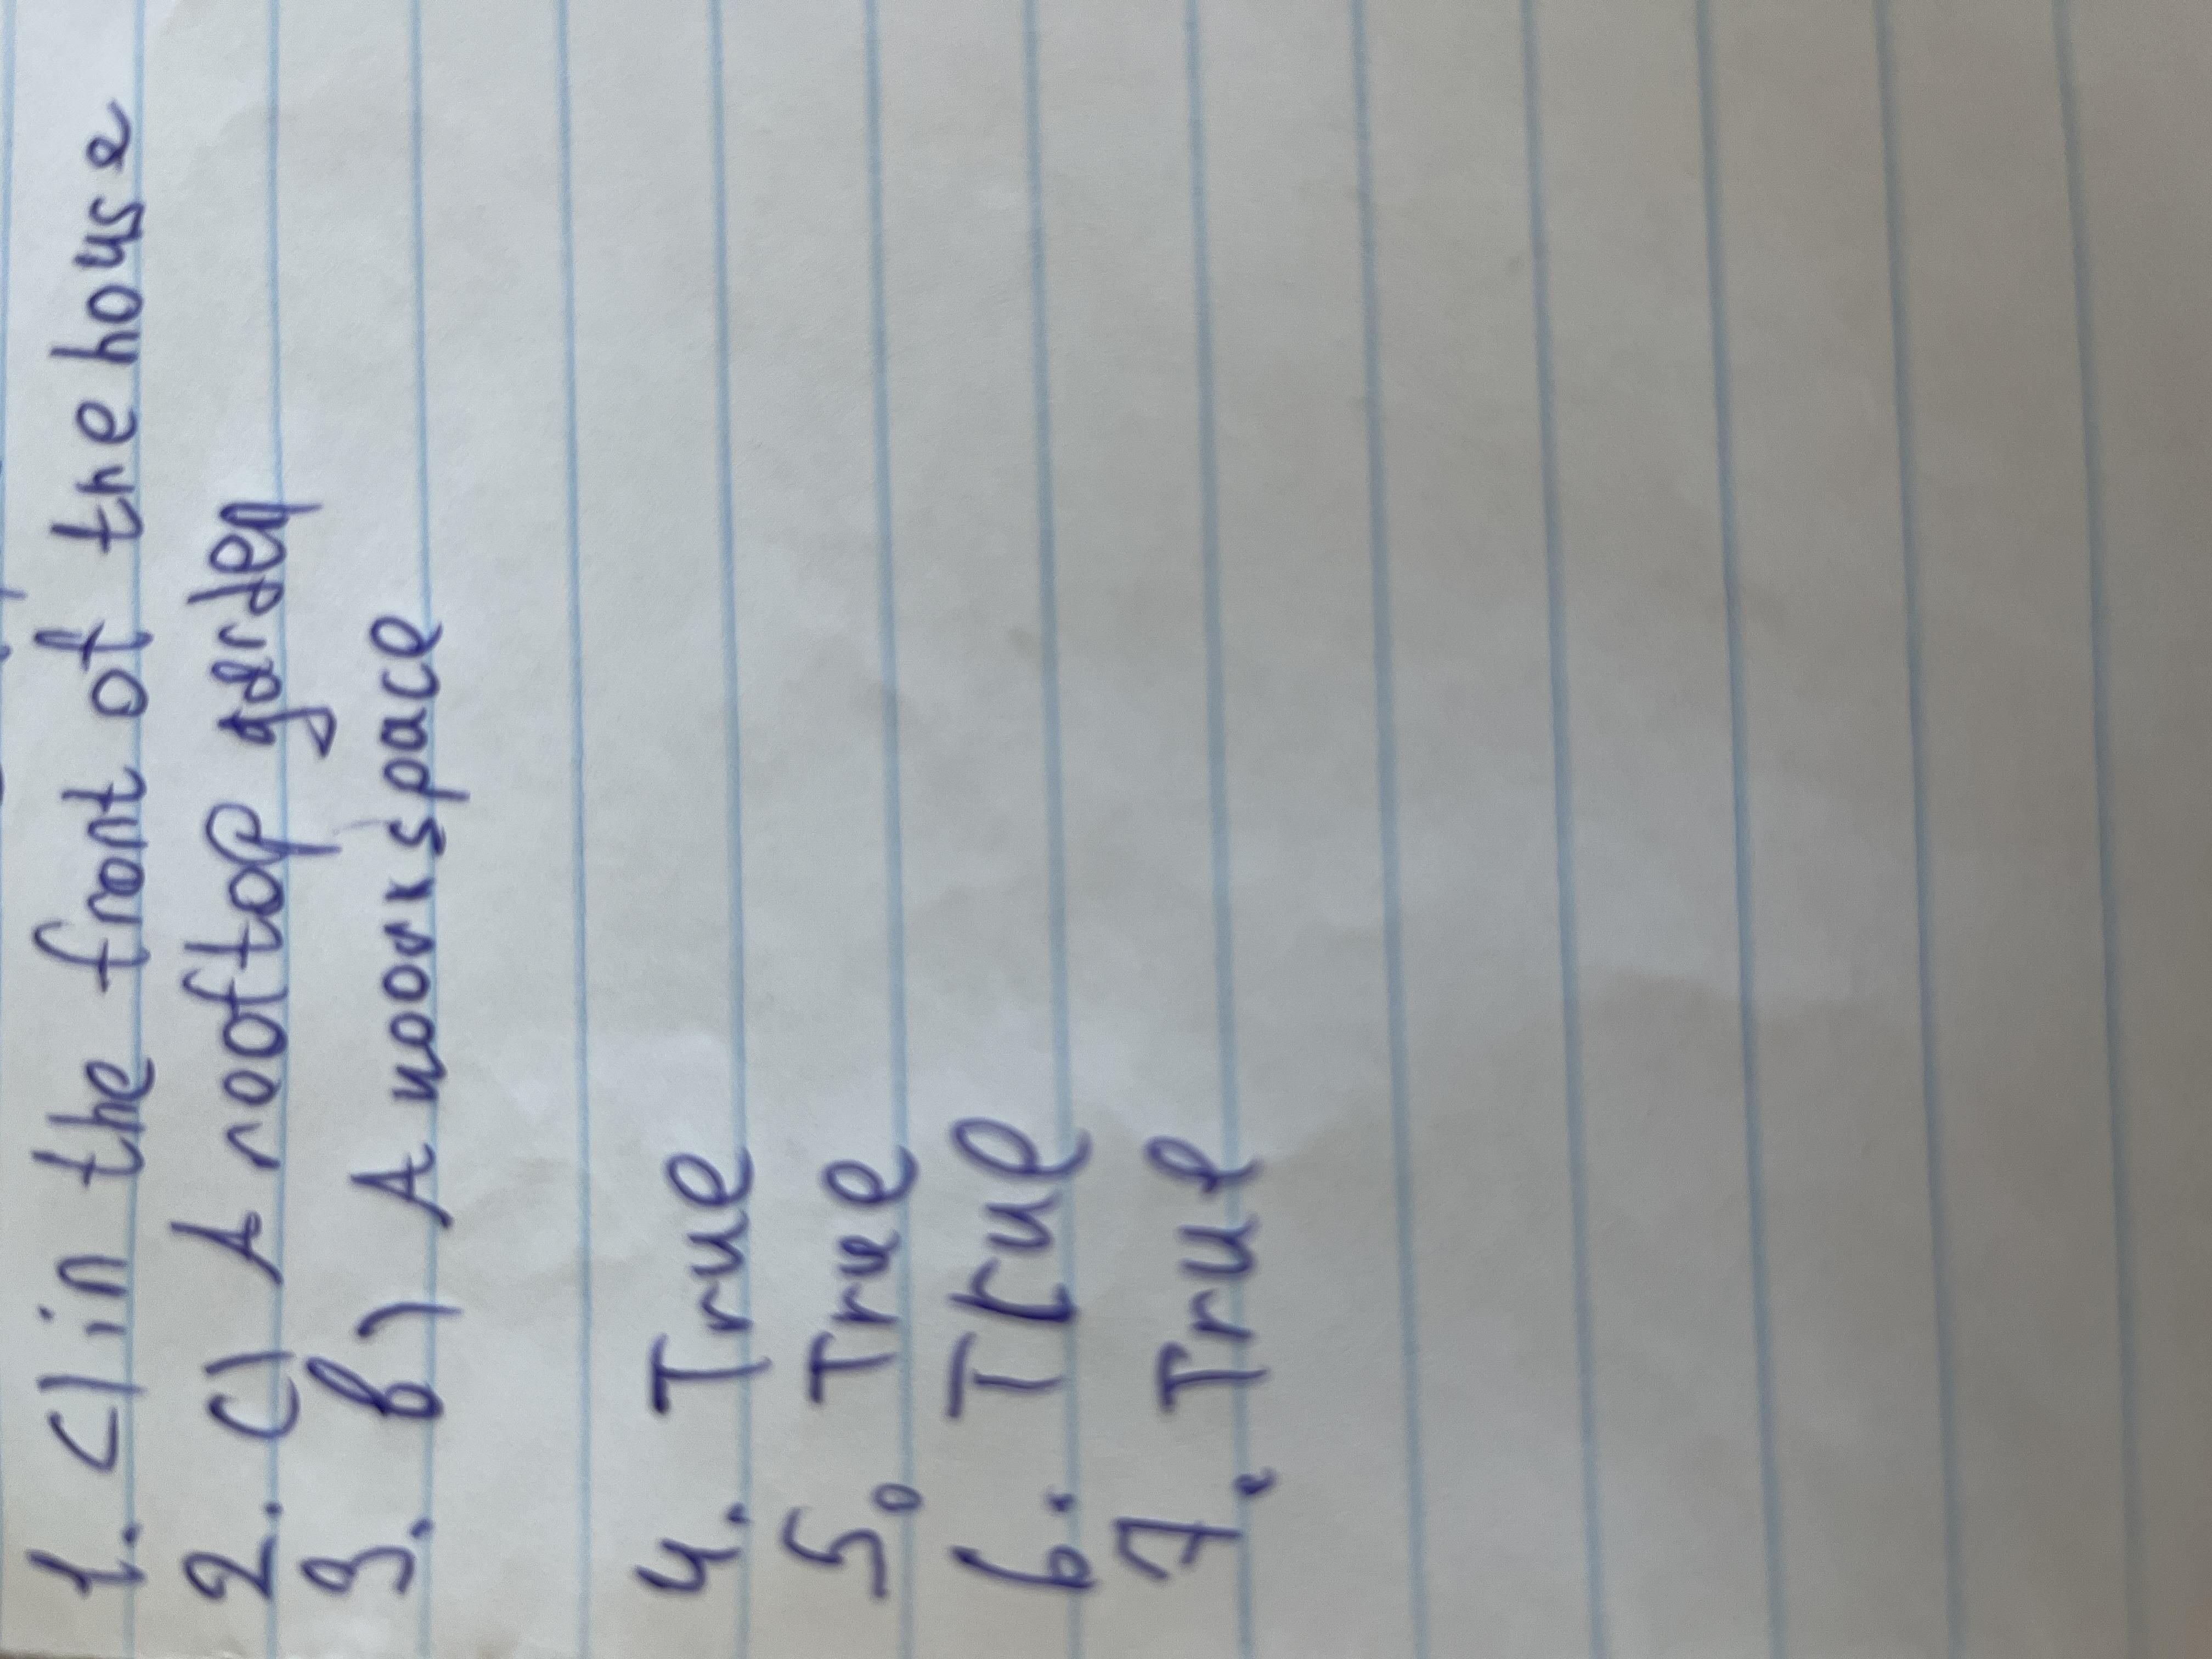 1. c) in the front of the house
2. c) A rooftop garden
3. b) A woorkspace
4. True
5. True
6. True
7. True